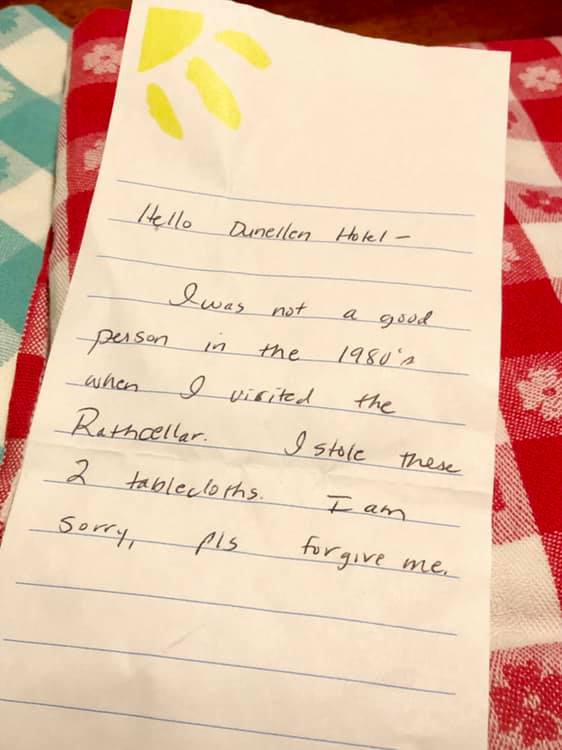 Hello Dunellen Hotel -
I was not a good
person in the 1980's
when I visited the
Rathcellar. I stole these
2 tablecloths. I am
sorry, pls forgive me.